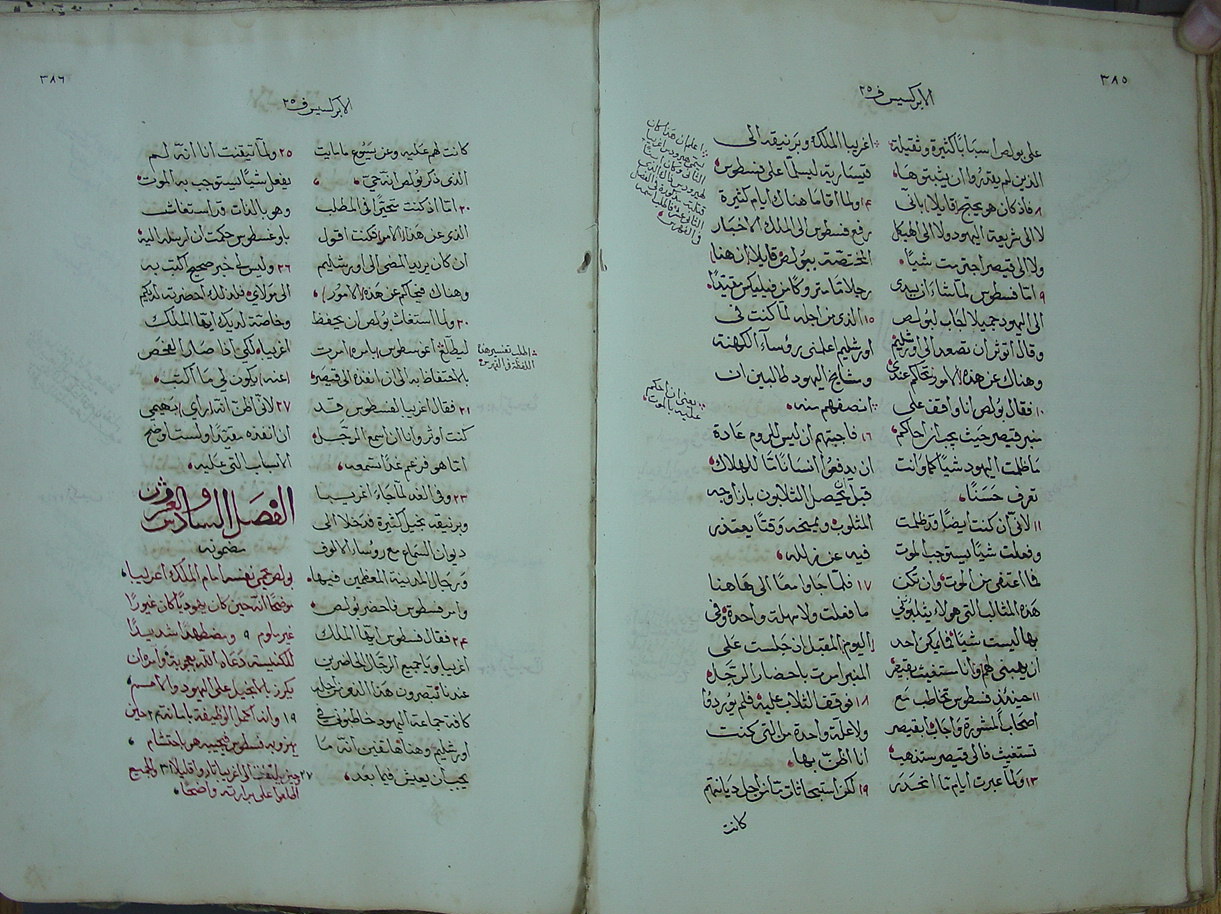 ٣٨٥
الابركسيس ف ٢٥
على بولص اسبابًا كثيرة وثقيلة
الذين لم يقدروا ان يثبتوها
٨ فاذ كان هو يحتج قايلًا باني
لا الى شريعة اليهود ولا الى الهيكل
ولا الى قيصر اجترمت شيًا
٩ امّا فسطوس لما شاء ان يبدي
الى اليهود جميلًا اجاب لبولص
وقال اتوثر ان تصعد الى اورشليم
وهناك عن هذه الامور تحاكم عندي
١٠ فقال بولص انا واقف على
منبر قيصر حيث يجب ان احاكم
ما ظلمت اليهود شيًا كما وانت
تعرف حسنًا
١١ لاني ان كنت ايضًا قد ظلمت
وفعلت شيًا يستوجب الموت
فما اعتفي من الموت وان تكن
هذه المثالب التي هولاء يثلبوني
بها ليست شيًا فما يمكن احد
ان يهبني لهم فانا مستغيث بقيصر
١١ حينئذ فسطوس تخاطب مع
اصحاب المشورة واجاب ابقيصر
تستغيث فالى قيصر ستذهب
١٣ ولما عبرت ايام ما انحدر
اغريبا الملك وبرنيقه الى
قيسارية ليسلما على فسطوس
١٤ ولما اقاما هناك ايام كثيرة
رفع فسطوس الى الملك الاخبار
المختصة ببولص قايلًا ان هنا
رجلًا ما متروكًا من فيليكس مقيدًا
١٥ الذي من اجله لما كنت في
اورشليم اعلمني روساء الكهنة
ومشايخ اليهود طالبين ان
انصفهم منه
١٦ فاجبتهم ان ليس للروم عادة
ان يدفعوا انسانًا ما للهلاك
قبل يحصل الثلابون بازا وجه
المثلوب ويمنحه وقتًا يعتذر
فيه عن زلله
١٧ فلما جاوا معًا الى هاهنا
ما فعلت ولا مهلت واحدة وفي
اليوم المقبل اذ جلست على
المنبر امرت باحضار الرجل
١٨ فوقف الثلاب عليه فلم يوردوا
ولا علة واحدة من التي كنت
انا اظن بها
١٩ لكن استبحاثات ما من اجل ديانتهم
كانت
اعلم ان هذا كان
يعني ان احكم
عليه بالموت
٣٨٦
الابركسيس ف ٢٥
كانت لهم عليه وعن يسوع ما مايت
الذي ذكر بولص انه حي
٢٠ امّا اذ كنت متحيرًا في المطلب
الذي عن هذا الامر فكنت اقول
ان كان يريد المضي الى اورشليم
وهناك فيحاكم عن هذه الامور
٢٠ ولما استغاث بولص ان يحفظ
ليطلع اغوسطس باسره امرت
بالاحتفاظ به الى ان انفذه الى قيصر
٢١ فقال اغريبا لفسطوس قد
كنت اوثر وانا ان اسمع الرجل
امّا هو فزعم غدًا تسمعه
٢٣ وفي الغد لما جاء اغريبا
وبرنيقه بخيل كثيرة فدخلا الى
ديوان السماع مع روسا الالوف
ورجال المدينة المعظمين فيها
وامر فسطوس فاحضر بولص
٢٤ فقال فسطوس ايها الملك
اغريبا ويا جميع الرجال الحاضرين
عندنا تبصرون هذا الذي من اجله
كافة جماعة اليهود خاطبوني في
اورشليم وهنا هاتفين انه ما
يجب ان يعيش فيما بعد
اطلب تفسير هذه
اللفظة في الفهرس
٢٥ ولما تيقنت انا انه لم
يفعل شيًا يستوجب به الموت
وهو بالذات قد استغاث
باوغسطوس حكمت ان ارسله اليه
٢٦ وليس لي خبر صحيح اكتب به
الى مولاي فلذلك احضرته لديكم
وخاصة لديك ايها الملك
اغريبا لكي اذا صار الفحص
عنه يكون لي ما اكتب
٢٧ لاني اظن انه راي بهيمي
ان انفذه مقيدًا ولست اوضح
الاسباب التي عليه
الفصل السادس والعشرون
مضمونه
بولص يحمي نفسه امام الملك اغريبا
موضحًا انه حين كان يهوديًا كان غيورًا
غير ملوم ٩ ومضطهدًا شديدًا
للكنيسة دعاه الله بعجوبة وامره ان
يكرز بالانجيل على اليهود والامم
١٩ وانه اكمل الوظيفة بامانة ٢٤ حين
يهزو به فسطوس فيجيبه هو باحتشام
٢٧ حين يلتفت الى اغريبا تادوا قليلًا ٣١ والجميع
اتفقوا على برارته واضحًا